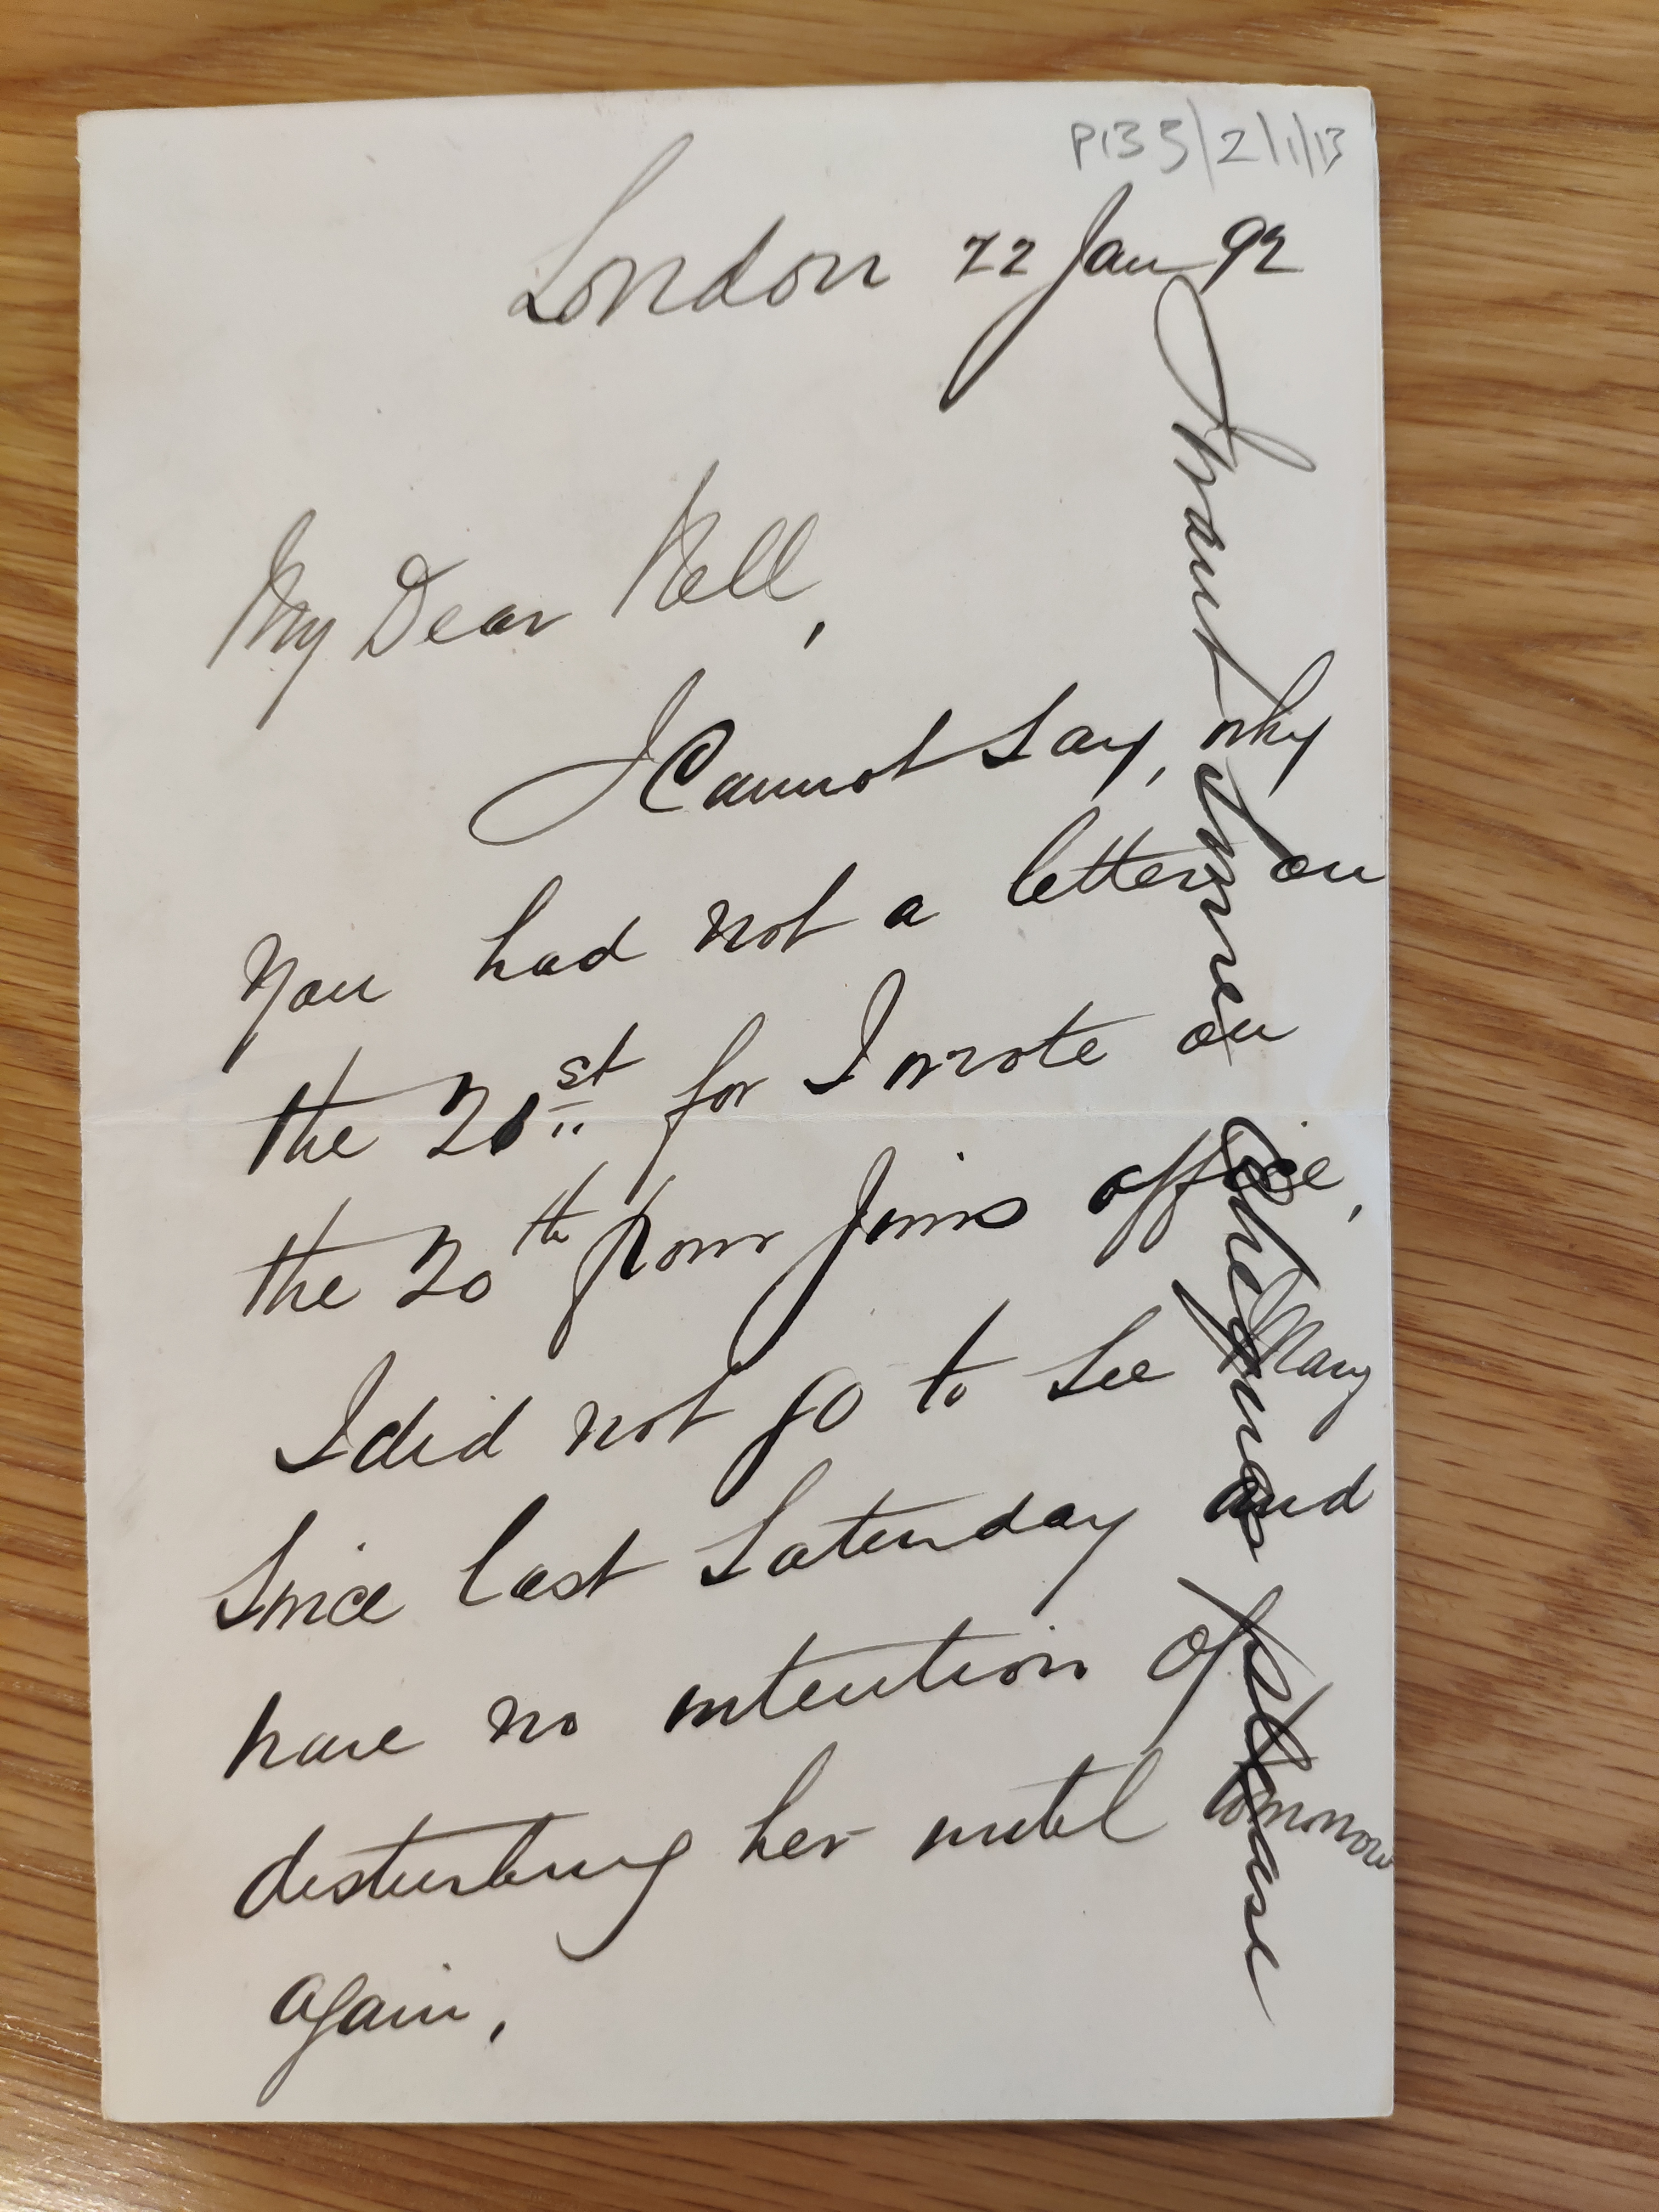 P135/2/1/13
London 22 Jan 92
My Dear Nell,
I Cannot Say, why
you had not a letter on
the 21st for I wrote on
the 20th from Jims office,
I did not go to see Mary
Since last Saturday and
have no intention of
disturbing her until tomorrow
again.
I want some Cheques please